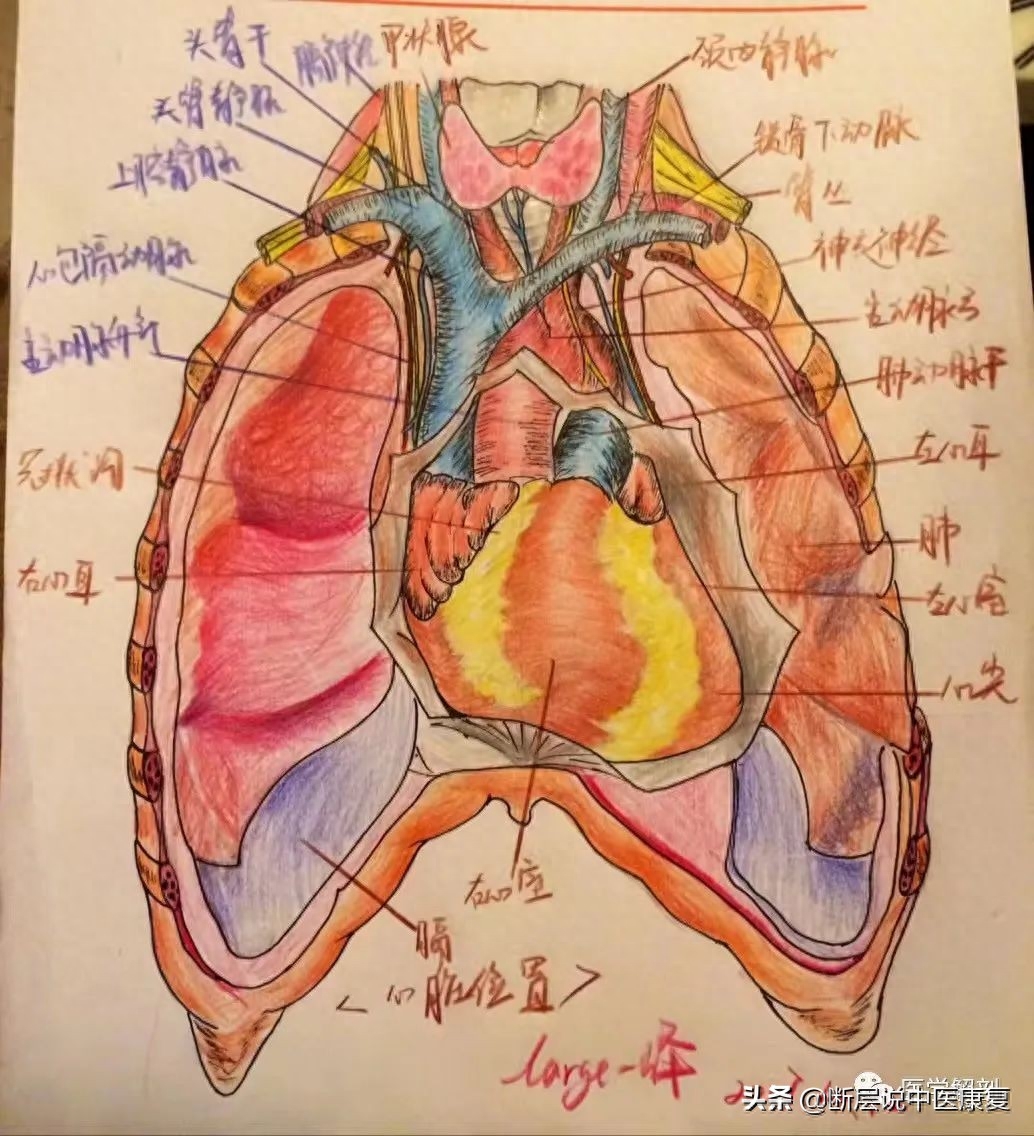 头臂干
膈神经
甲状腺
颈内静脉
头臂静脉
锁骨下动脉
上腔静脉
臂丛
迷走神经
心包膈动脉
主动脉弓
主动脉升部
肺动脉干
左心耳
冠状沟
肺
右心耳
左心室
心尖
右心室
膈
<心脏位置>
large-峄
医学解剖
头条 @断层说中医康复